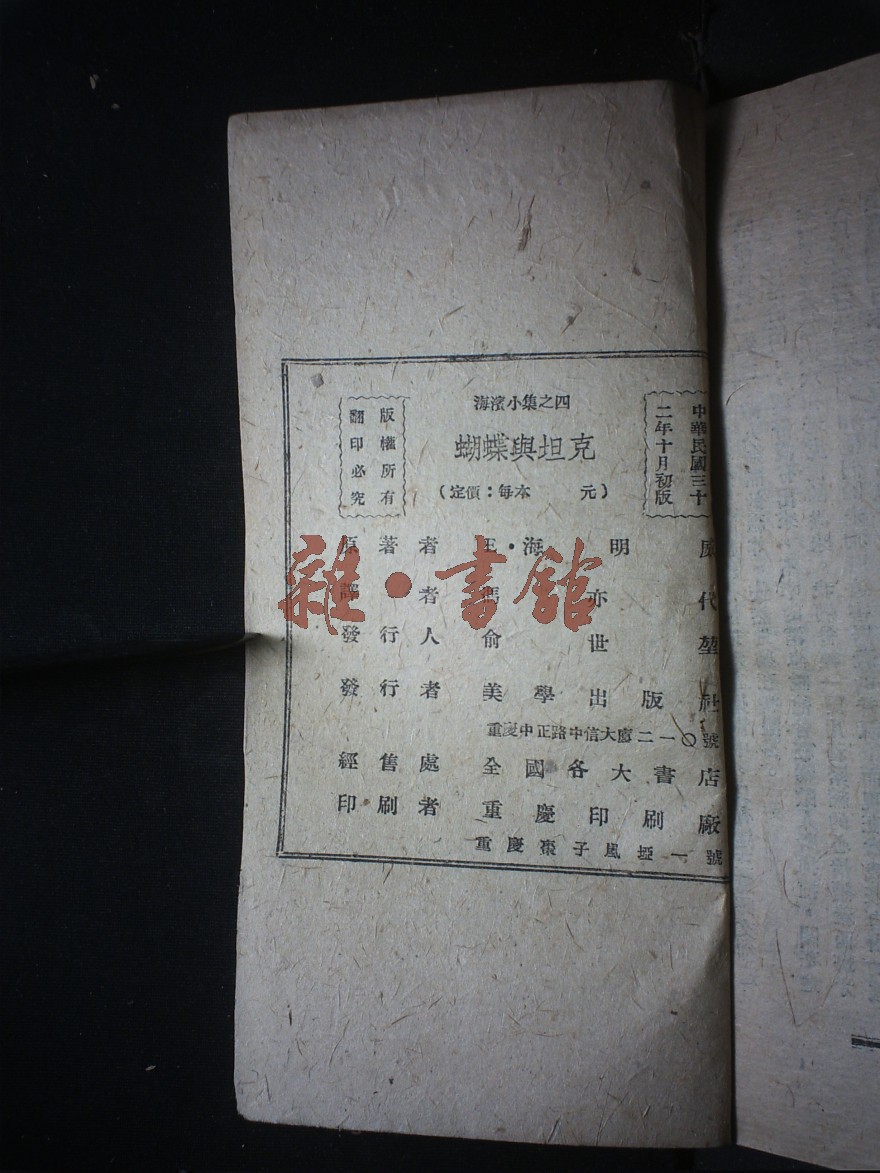 中華民國三十
二年十月初版
海濱小集之四
蝴蝶與坦克
(定價：每本　　元)
版權所有
翻印必究
原著者　王·海明威
譯者　馮亦代
發行人　俞世堃
發行者　美學出版社
重慶中正路中信大廈二一〇號
經售處　全國各大書店
印刷者　重慶印刷廠
重慶棗子嵐埡一號
雜·書館